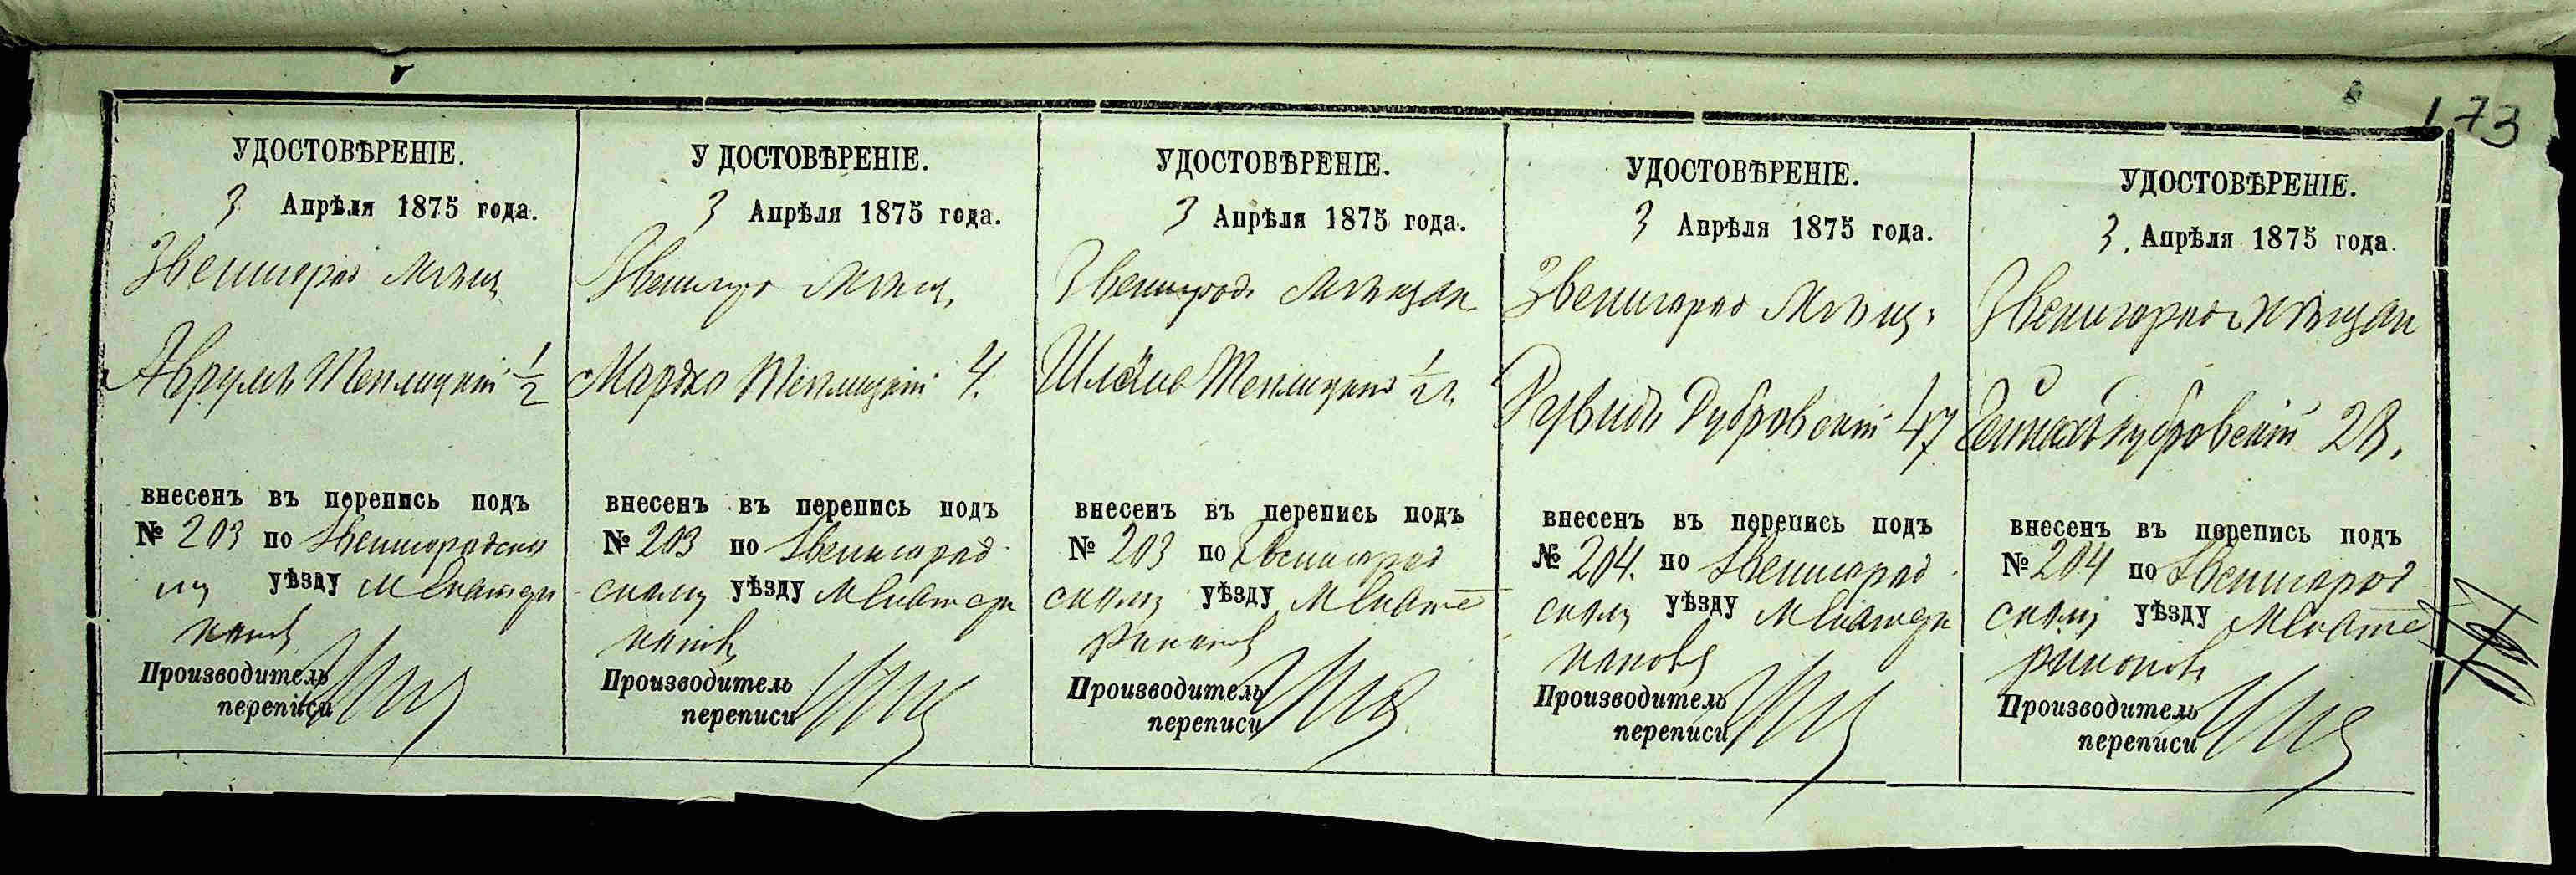 173
УДОСТОВѢРЕНІЕ.
3 Апрѣля 1875 года.
Звенигород мѣщ
Аврумъ Теплицкій 1/2
внесенъ въ перепись подъ
№ 203 по Звенигородско
му уѣзду М Екатери
Производитель
переписи
У ДОСТОВѢРЕНІЕ.
3 Апрѣля 1875 года.
Звенигро мѣщ.
Мордко Теплицкій 4.
внесенъ въ перепись подъ
№ 203 по Звенигород
скому уѣзду М Екатери
Производитель
переписи
УДОСТОВѢРЕНІЕ.
3 Апрѣля 1875 года.
Звенигрод мѣщан
Шлёма Теплицкій 1/2 г.
внесенъ въ перепись подъ
№ 203 по Звенигород
скому уѣзду М Екате
Производитель
переписи
УДОСТОВѢРЕНІЕ.
3 Апрѣля 1875 года.
Звенигород мѣщ.
Дувидъ Дубровскій 47
внесенъ въ перепись подъ
№ 204. по Звенигород
скому уѣзду М Екатери
нополь
Производитель
переписи
УДОСТОВѢРЕНІЕ.
3. Апрѣля 1875 года.
Звенигород мѣщан
Дубровскій 28.
внесенъ въ перепись подъ
№ 204 по Звенигород
скому уѣзду М Екате
ринополь
Производитель
переписи